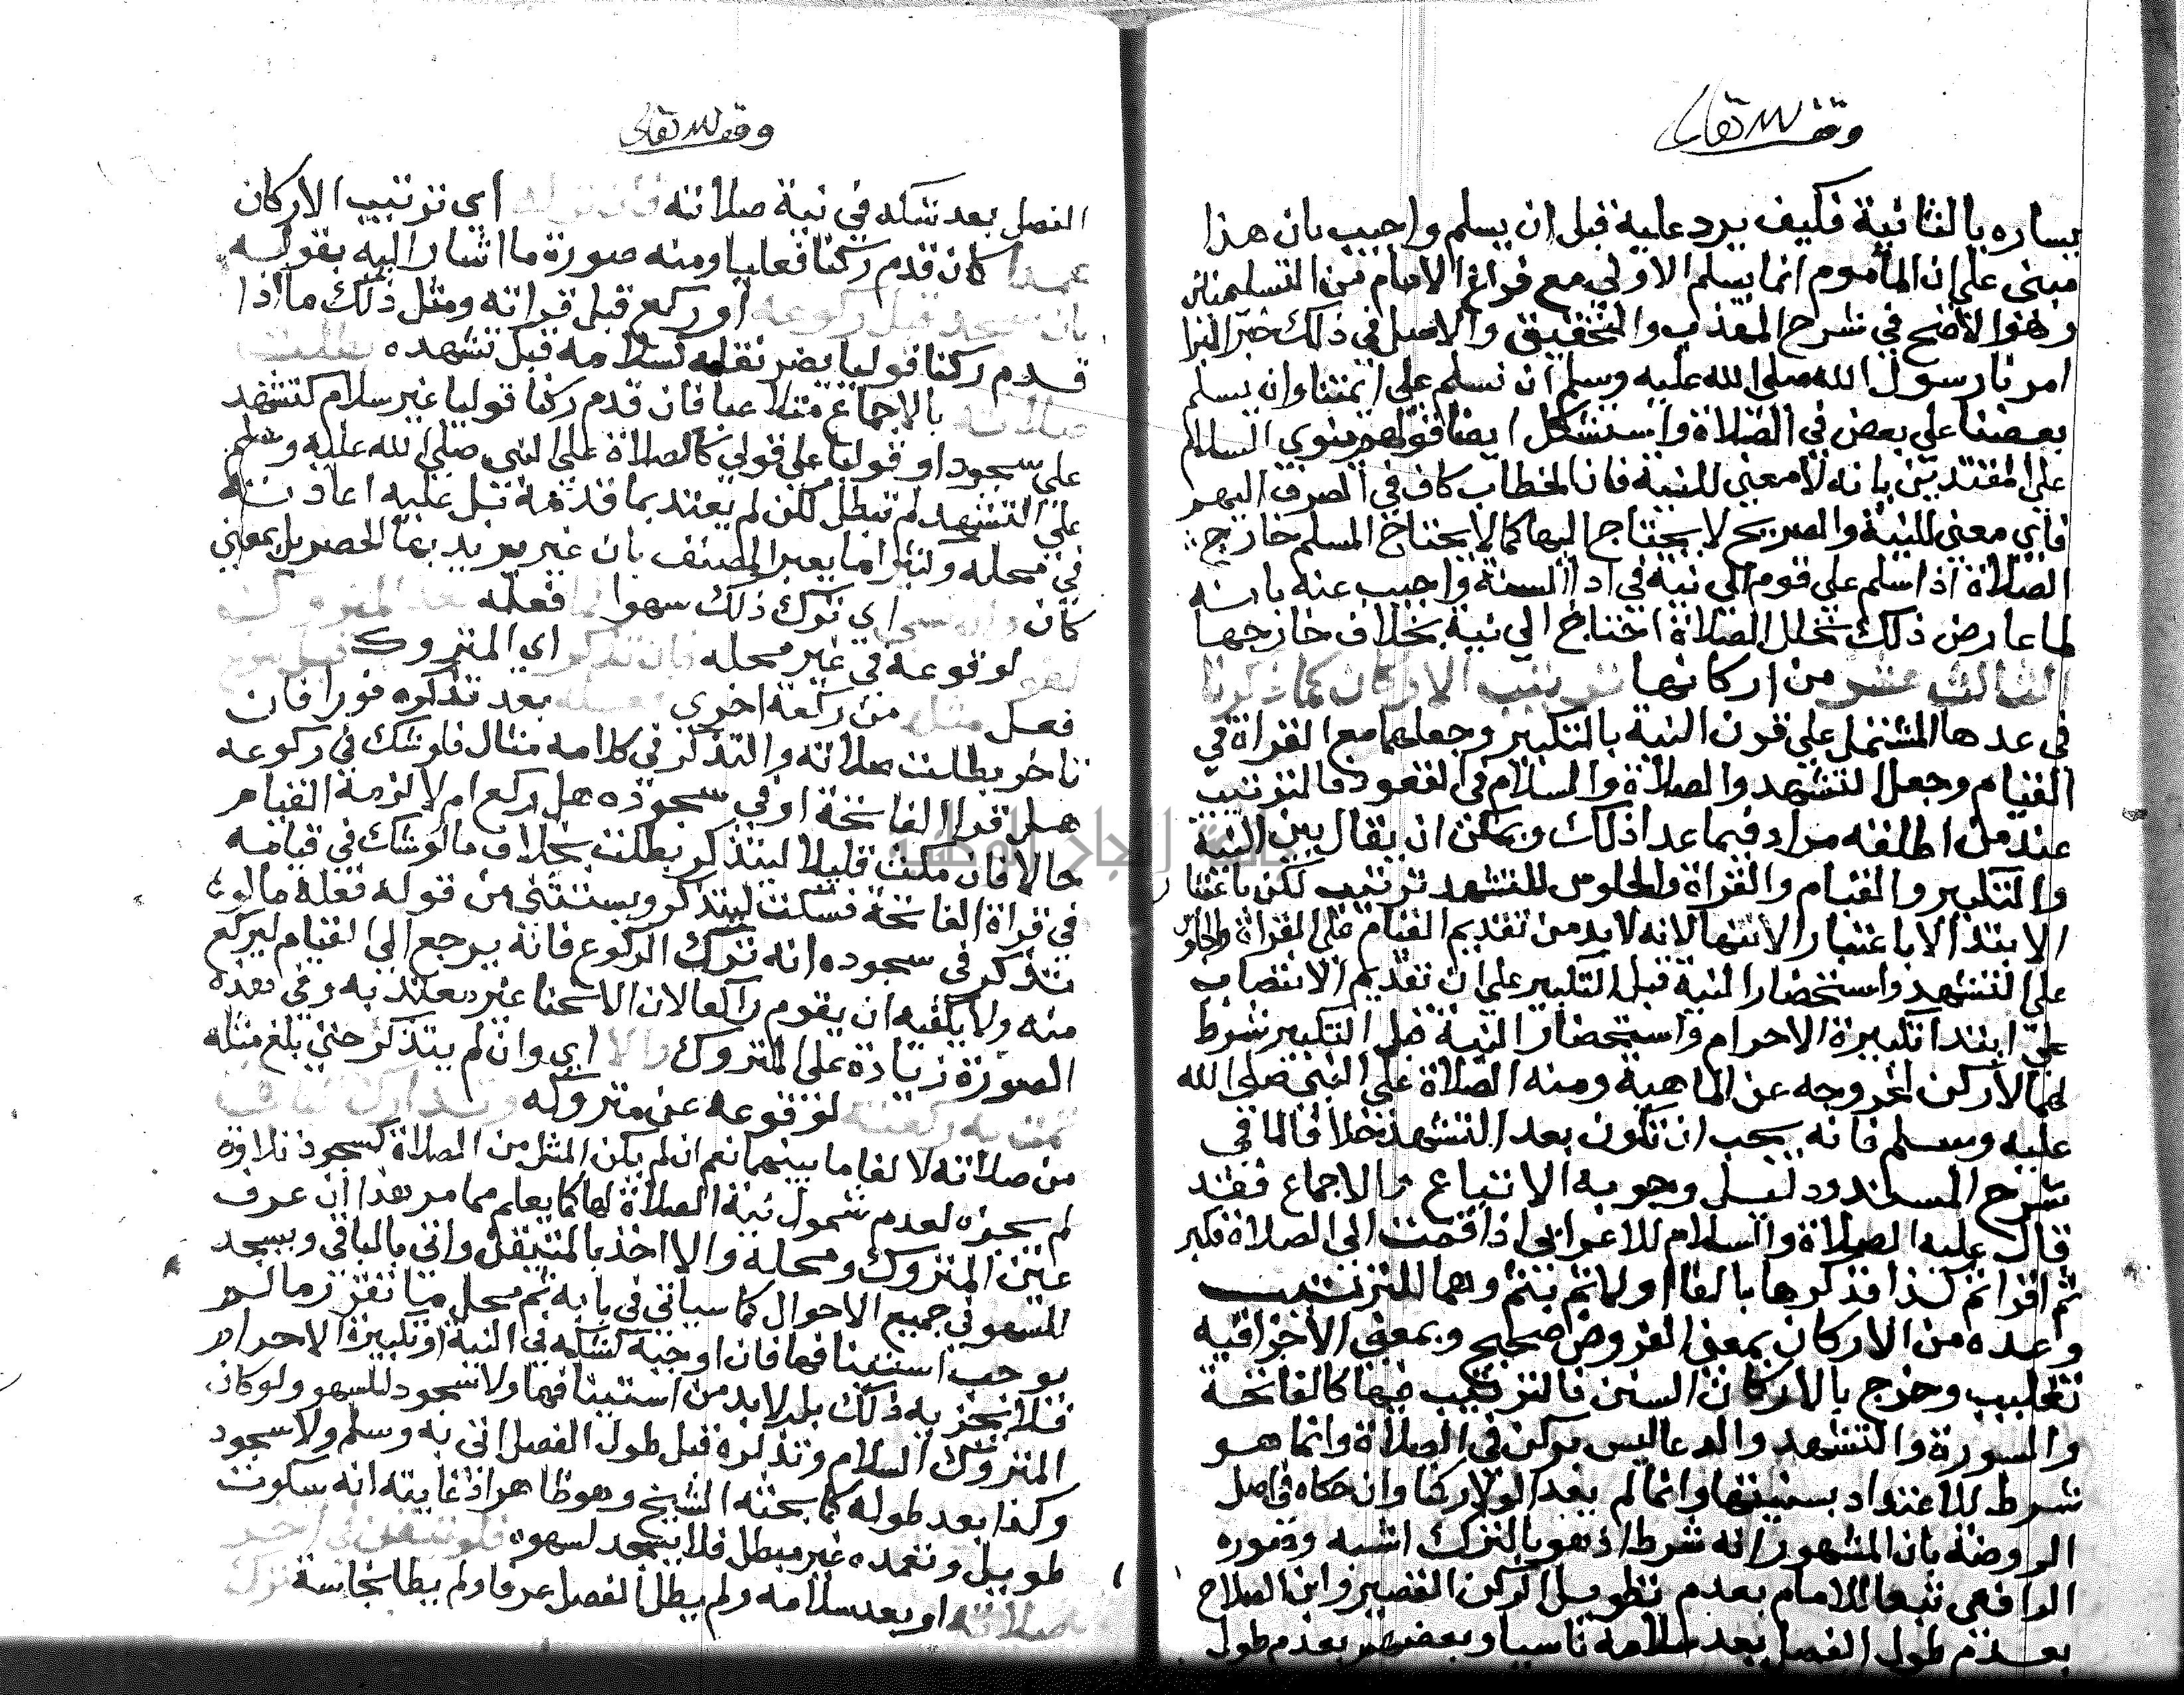 وقف لله تعالى
يساره بالثانية فكيف يرد عليه قبل ان يسلم واجيب بان هذا
مبنى على ان المأموم انما يسلم الاولى مع فراغ الامام من التسليمتين
وهو الاصح في شرح المهذب والتحقيق والاصل في ذلك خبر البزا
امرنا رسول الله صلى الله عليه وسلم ان نسلم على ائمتنا وان يسلم
بعضنا على بعض في الصلاة واستشكل ايضا قولهم ينوي السلام
على المقتدين بانه لا معنى للنية فان الخطاب كاف في الصرف اليهم
فاي معنى للنية والصريح لا يحتاج اليها كما لا يحتاج المسلم خارج
الصلاة اذا سلم على قوم الى نية في ادا السنة واجيب عنه بانه
لما عارض ذلك تحلل الصلاة احتاج الى نية بخلاف خارجها
الثالث عشر من اركانها ترتيب الاركان كما ذكرنا
في عدها المشتمل على قرن النية بالتكبير وجعلهما مع القراة في
القيام وجعل التشهد والصلاة والسلام في القعود فالترتيب
عند من اطلقه مراد فيما عدا ذلك ويمكن ان يقال بين النية
والتكبير والقيام والقراة والجلوس للتشهد ترتيب لكن باعتبار
الابتدا لا باعتبار الانتها لانه لا بد من تقديم القيام على القراة والجلوس
على التشهد واستحضار النية قبل التكبير على ان تقديم الانتصاب
على ابتدا تكبيرة الاحرام واستحضار النية قبل التكبير شرط
لهما لا ركن لخروجه عن الماهية ومنه الصلاة على النبي صلى الله
عليه وسلم فانه يجب ان تكون بعد التشهد خلافا لما في
شرح المسند ودليل وجوبه الاتباع والاجماع فقد
قال عليه الصلاة والسلام للاعرابي اذا قمت الى الصلاة فكبر
ثم اقرا ثم كذا فذكرها بالفا اولا ثم بثم وهما للترتيب
وعده من الاركان بمعنى الفروض صحيح وبمعنى الاجزا فيه
تغليب وخرج بالاركان السنن فالترتيب فيها كالفاتحة
والسورة والتشهد والدعا ليس بركن في الصلاة وانما هو
شرط للاعتداد بسنيتها وانما لم يعد الولا ركنا وان حكاه في اصل
الروضة بان المشهور انه شرط اذ هو بالترك اشبه وصوره
الرافعي تبعا للامام بعدم تطويل الركن القصير وابن الصلاح
بعدم طول الفصل بعد سلامه ناسيا وبعضهم بعدم طول
وقف لله تعالى
الفصل بعد شكه في نية صلاته فان تركه اي ترتيب الاركان
عمدا كان قدم ركنا فعليا ومنه صورة ما اشار اليه بقوله
بان سجد قبل ركوعه او ركع قبل قراته ومثل ذلك ما اذا
قدم ركنا قوليا يضر نقله كسلامه قبل تشهده بطلت
صلاته بالاجماع لتلاعبه فان قدم ركنا قوليا غير سلام كتشهد
على سجود او قوليا على قولي كالصلاة على النبي صلى الله عليه وسلم
على التشهد لم تبطل لكن لم يعتد بما قدمه بل عليه اعادته
في محله وكثيرا ما يعبر المصنف بان غير مريد بها الحصر بل بمعنى
كان وان سهى اي ترك ذلك سهوا فعله
لغو لوقوعه في غير محله فان تذكر اي المتروك
فعل مثله من ركعة اخرى فعله بعد تذكره فورا فان
تاخر بطلت صلاته والتذكر في كلامه مثال فلو شك في ركوعه
هل قرا الفاتحة او في سجوده هل ركع ام لا لزمه القيام
حالا فان مكث قليلا ليتذكر بطلت بخلاف ما لو شك في قيامه
في قراة الفاتحة فسكت ليتذكر ويستثنى من قوله فعله ما لو
تذكر في سجوده انه ترك الركوع فانه يرجع الى القيام ليركع
منه ولا يكفيه ان يقوم راكعا لان الانحنا غير معتد به وفي هذه
الصورة زيادة على المتروك والا اي وان لم يتذكر حتى بلغ مثله
تمت به ركعته لوقوعه عن متروكه وتدارك الباقي
من صلاته لالغا ما بينهما نعم ان لم يكن المثل من الصلاة كسجود تلاوة
لم يجزه لعدم شمول نية الصلاة لها كما يعلم مما مر هذا ان عرف
عين المتروك ومحله والا اخذ بالمتيقن واتى بالباقي ويسجد
للسهو في جميع الاحوال كما سياتي في بابه ثم محل ما تقرر ما لم
يوجب استئنافها فان اوجبه كشكه في النية او تكبيرة الاحرام
فلا يجزيه ذلك بل لا بد من استئنافها ولا سجود للسهو ولو كان
المتروك السلام وتذكره قبل طول الفصل اتى به وسلم ولا سجود
وكذا بعد طوله كما بحثه الشيخ وهو ظاهر اذ غايته انه سكوت
طويل وتعمده غير مبطل فلا يسجد لسهوه فلو تيقن في اخر
صلاته او بعد سلامه ولم يطل الفصل عرفا ولم يطا نجاسة ترك